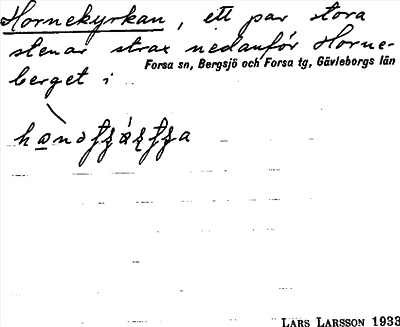 Hornekyrkan, ett par stora
stenar strax nedanför Horne-
berget i
Forsa sn, Bergsjö och Forsa tg, Gävleborgs län
LARS LARSSON 1933